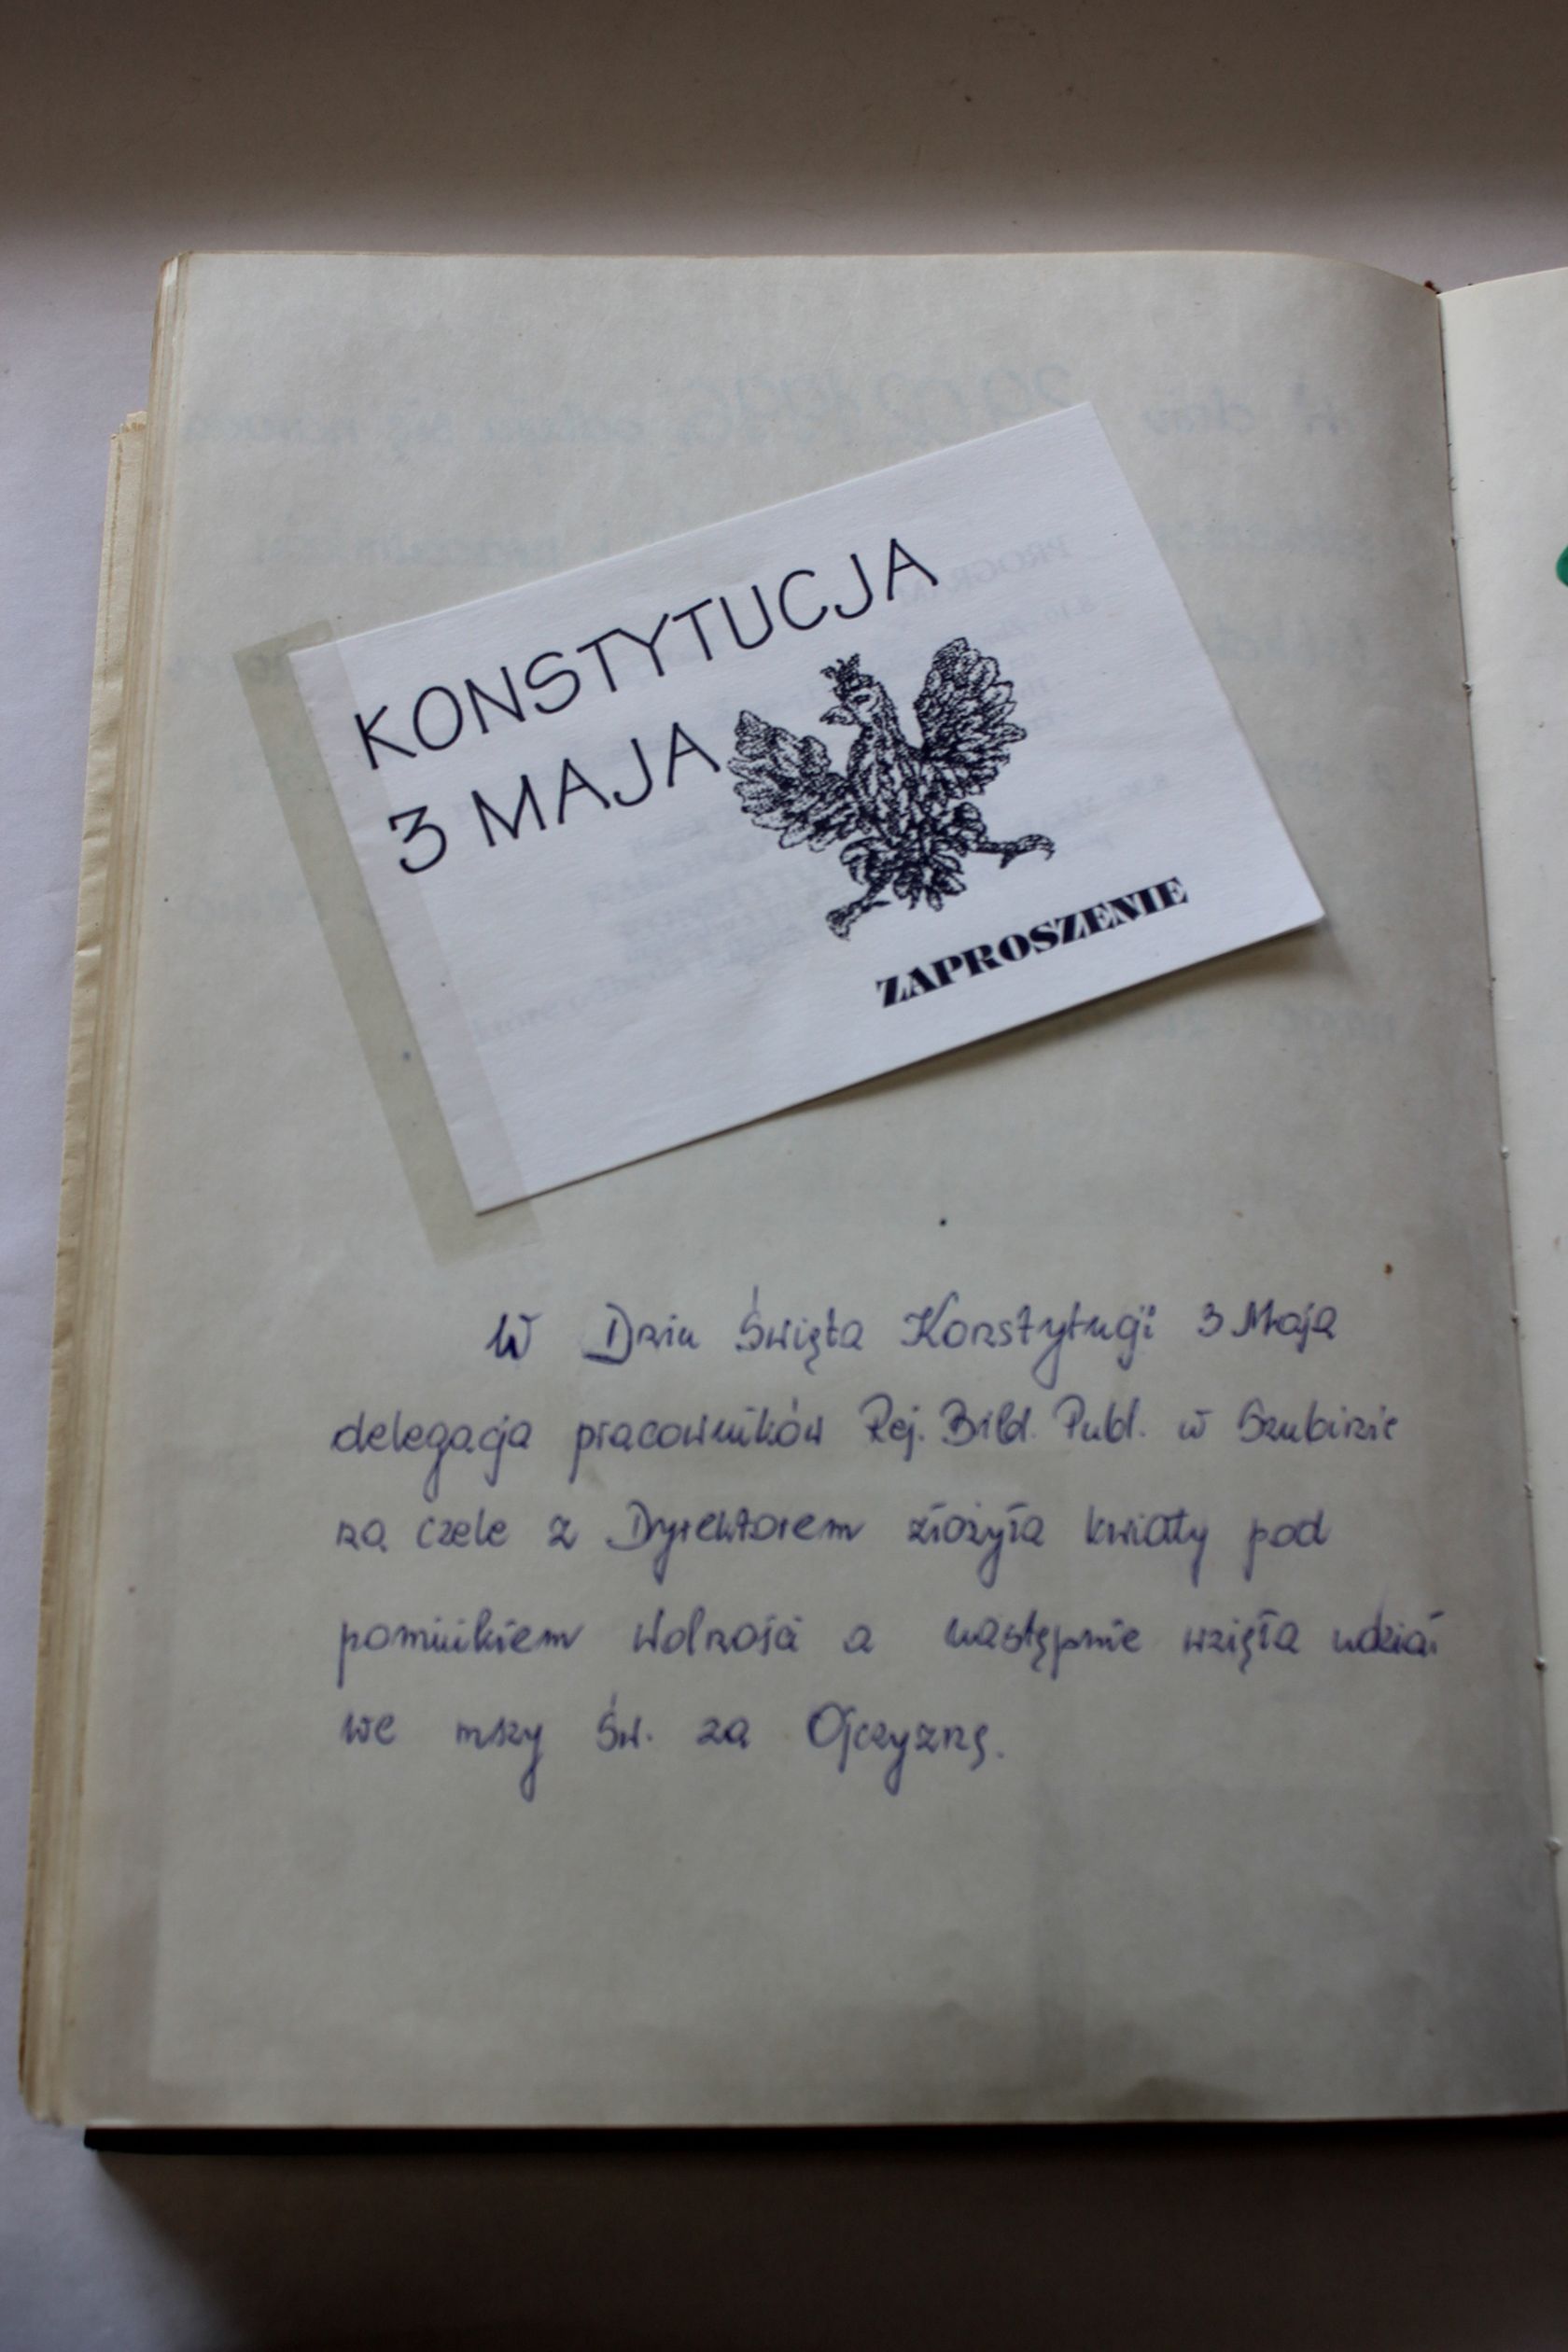 KONSTYTUCJA
3 MAJA
ZAPROSZENIE
W Dniu Święta Konstytucji 3 Maja
delegacja pracowników Rej. Bibl. Publ. w Szubinie
na czele z Dyrektorem złożyła kwiaty pod
pomnikiem wolności a następnie wzięła udział
we mszy Św. za Ojczyznę.